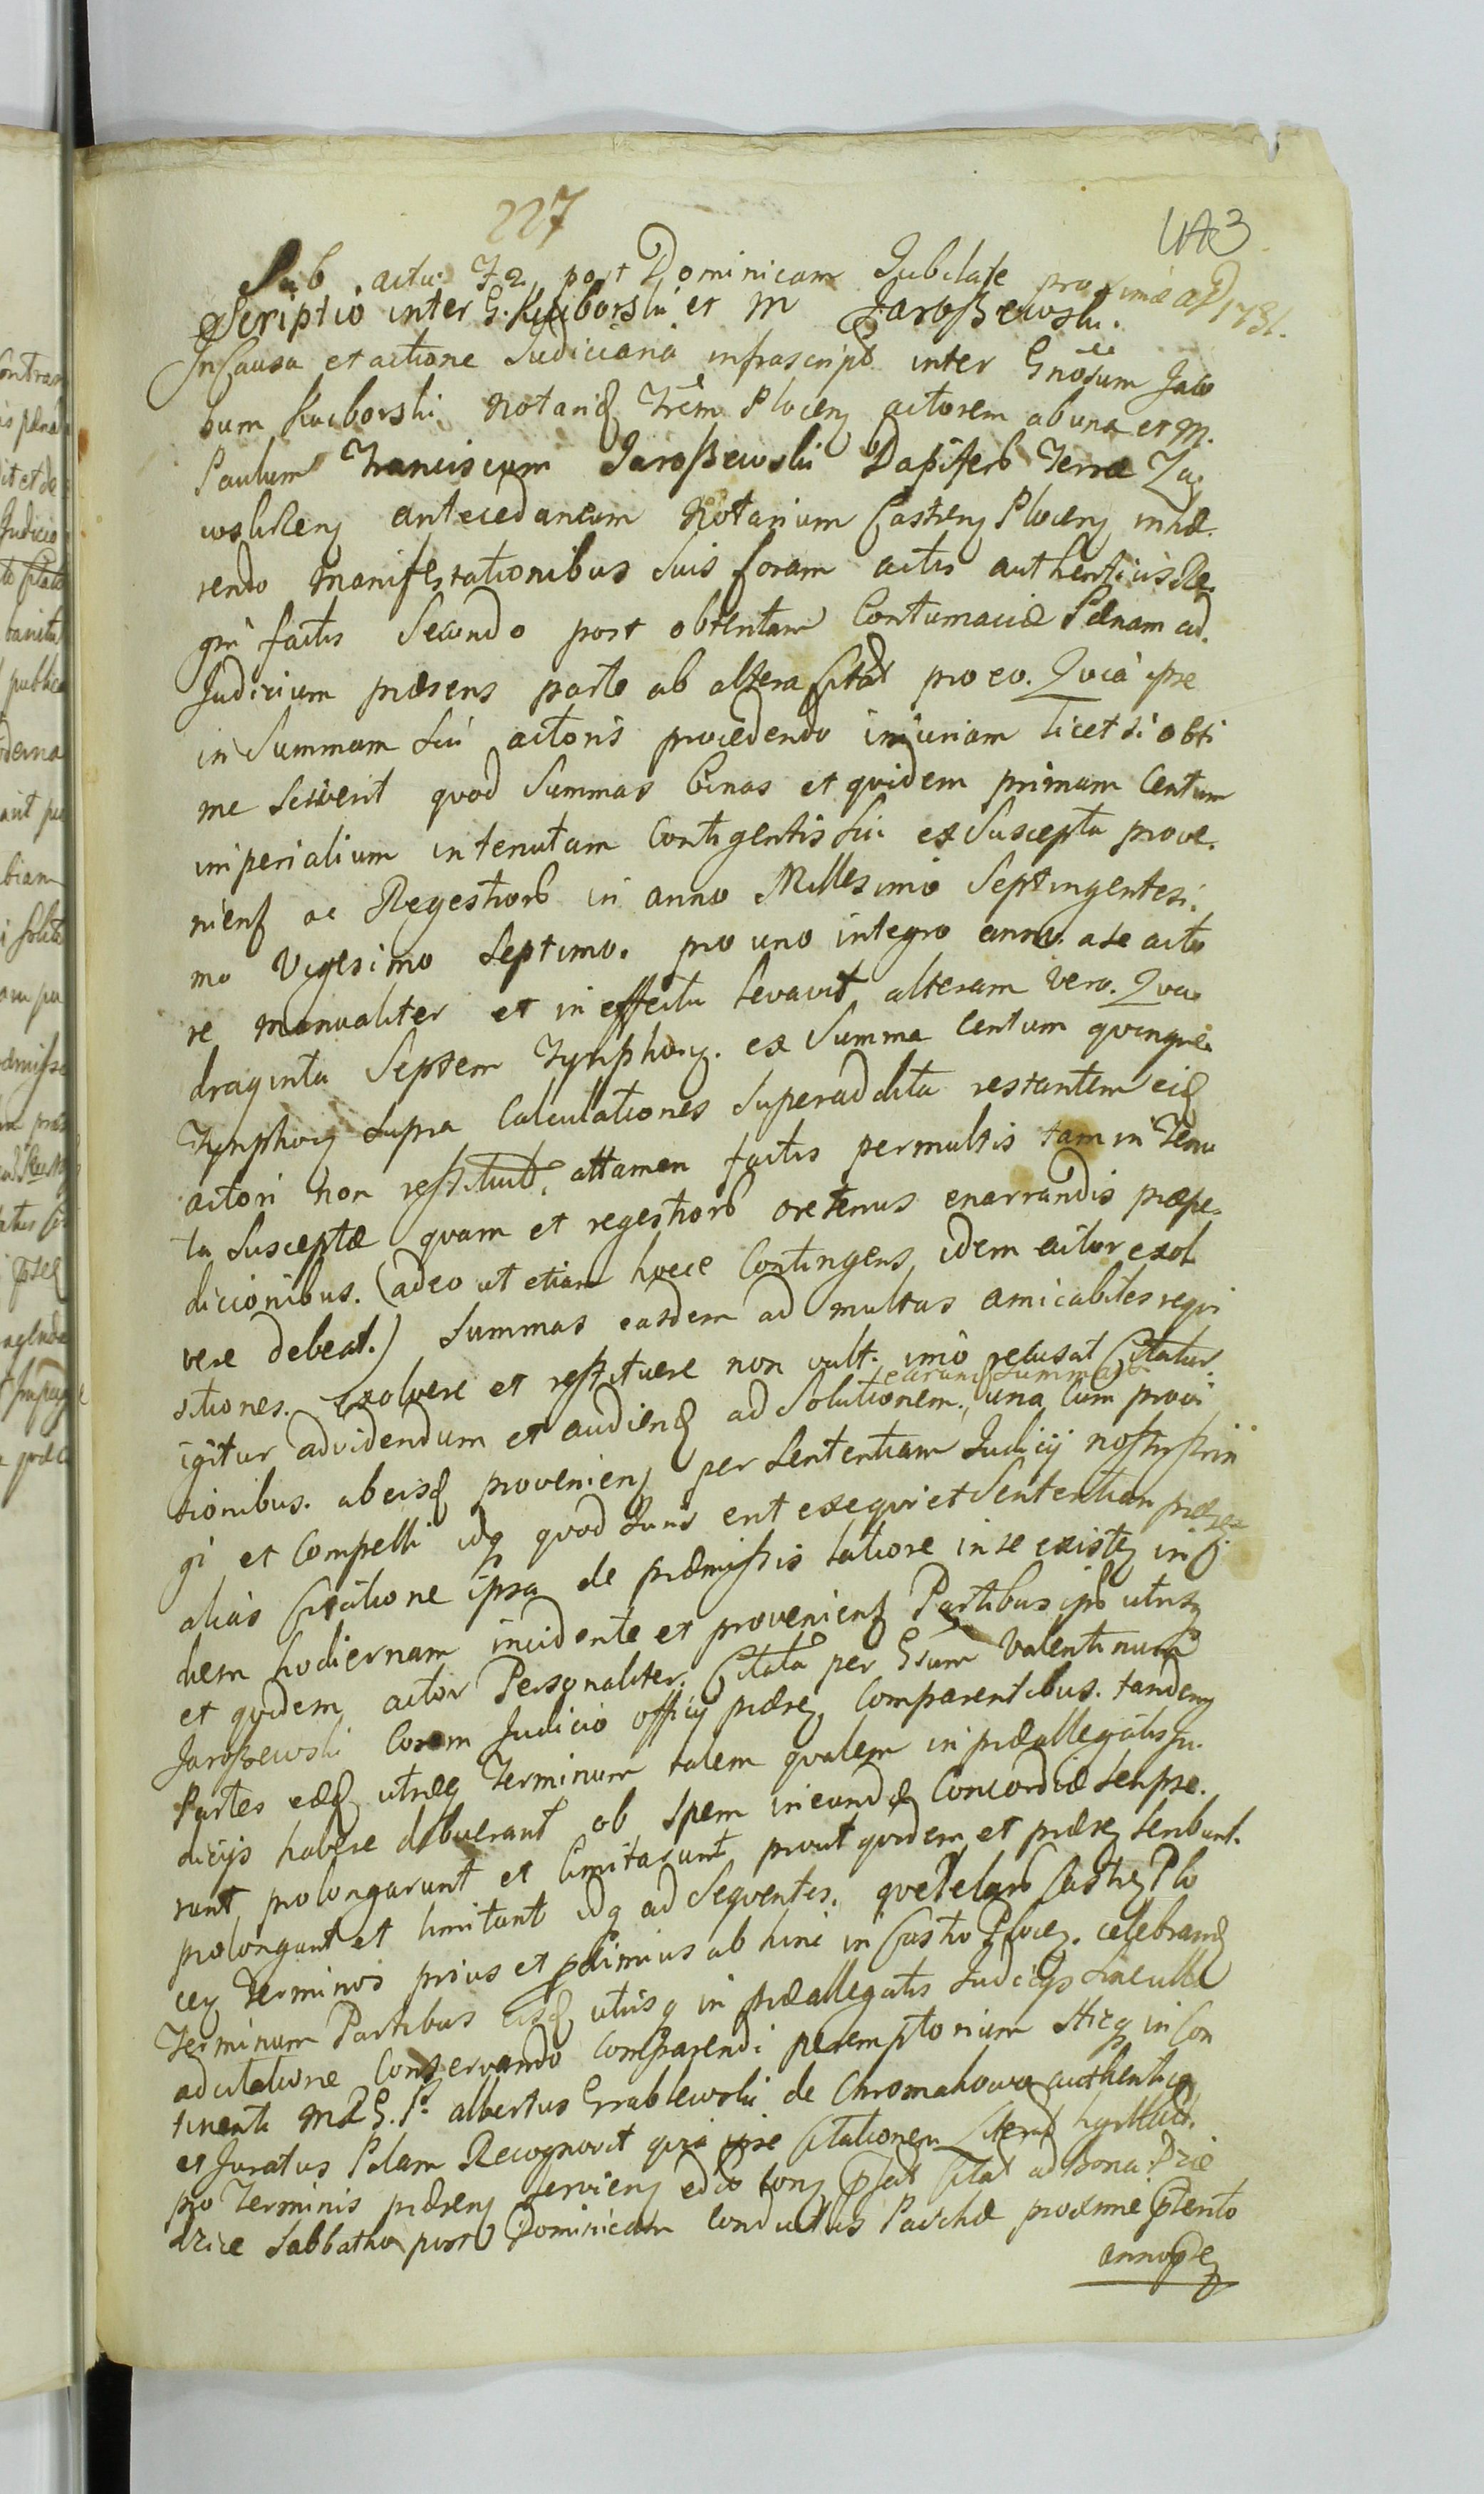 227
443
Sub actu F 2 post Dominicam Jubilate proxima AD 1731.
Scriptio inter G. Kuiborski et M Jaroszewski.
In Causa et actione Judiciaria infrascript inter Gnosum Jaco
bum Kuiborski Notariq Trem Plocens actorem abuna et M.
Paulum Franciscum Jaroszewski Dapiferb Terræ Zaz
wskrens antecedaneum Notarium Castrens Plocens inhæ.
rendo Manifestationibus suis foram actis authenticis Re.
gni factis Secundo post obtentam Contumaciæ Pænam ad
Judicium præsens parte ab altera Citat pro eo. Quia ipse
in Summam sui actoris procedendo injuriam licet si obti
me sciverit quod Summas binas et quidem primam Centum
imperialium in tenutam Contigentis sui ex Suscepta prove.
nienq ac Regestrorb in anno Millesimo Septingentesi.
mo Vigesimo Septimo. pro uno integro anno. a se acto
re manualiter et in effectu levavit alteram vero. Qva
draginta Septem Tynphons. ex Summa Centum qvinque
Tynphons supra Calculationes Superaddita restantem eiq
actori non restituit, attamen factis permultis tam in Tenu
ta Susceptæ qvam et regestrorb oretenus enarrandis præpe.
dicionibus. (adeo ut etiam hocce Contingens, idem actor exol
vere debeat.) Summas easdem ad multas amicabiles reqvi
sitiones. Exolvere et restituere non vult. imo recusat Citatur
igitur ad videndum et audienq ad Solutionem. earunq Summarb una cum provi
sionibus. ab eisq provenienq per Sententiam Judicij nostri strin
gi et Compelli idq quod Juris erit exeqvi et Sententiam præsen
alias Citatione ipsa de præmissis latiore in se existens in
diem hodiernam incidente et provenienq Partibus ipsb utrisq
et qvidem actor Personaliter. Citata per Gsum Valentinum
Jaroszewski Coram Judicio officij præsens Comparentibus. tandem
Partes eæq utræq Terminum talem qvalem in præallegatis Ju.
dicijs habere debuerant ob Spem ineundæ Concordiæ se ipse.
runt prolongarunt et limitarunt prout qvidem et præsens scribunt.
prolongant et limitant idq ad Seqventes. qverelarb Castrens Plo
cens Terminos prius et proximius ab hinc in Castro Plocens. celebranq
Terminum Partibus eisq utrisq in præallegatis Judicijs sine ulla
adcitatione Conservando Comparendi peremptorium Hicq in Con
tinenti M G. Pr albertus Grablewski de Chromakowo authenticq
et Juratus Palam Recognovit qvia ipse Citationem Literat
pro Terminis præsens servienq Citat ad bona
drice Sabbatho post Dominicam Conductus Paschæ proxime pterito
anno